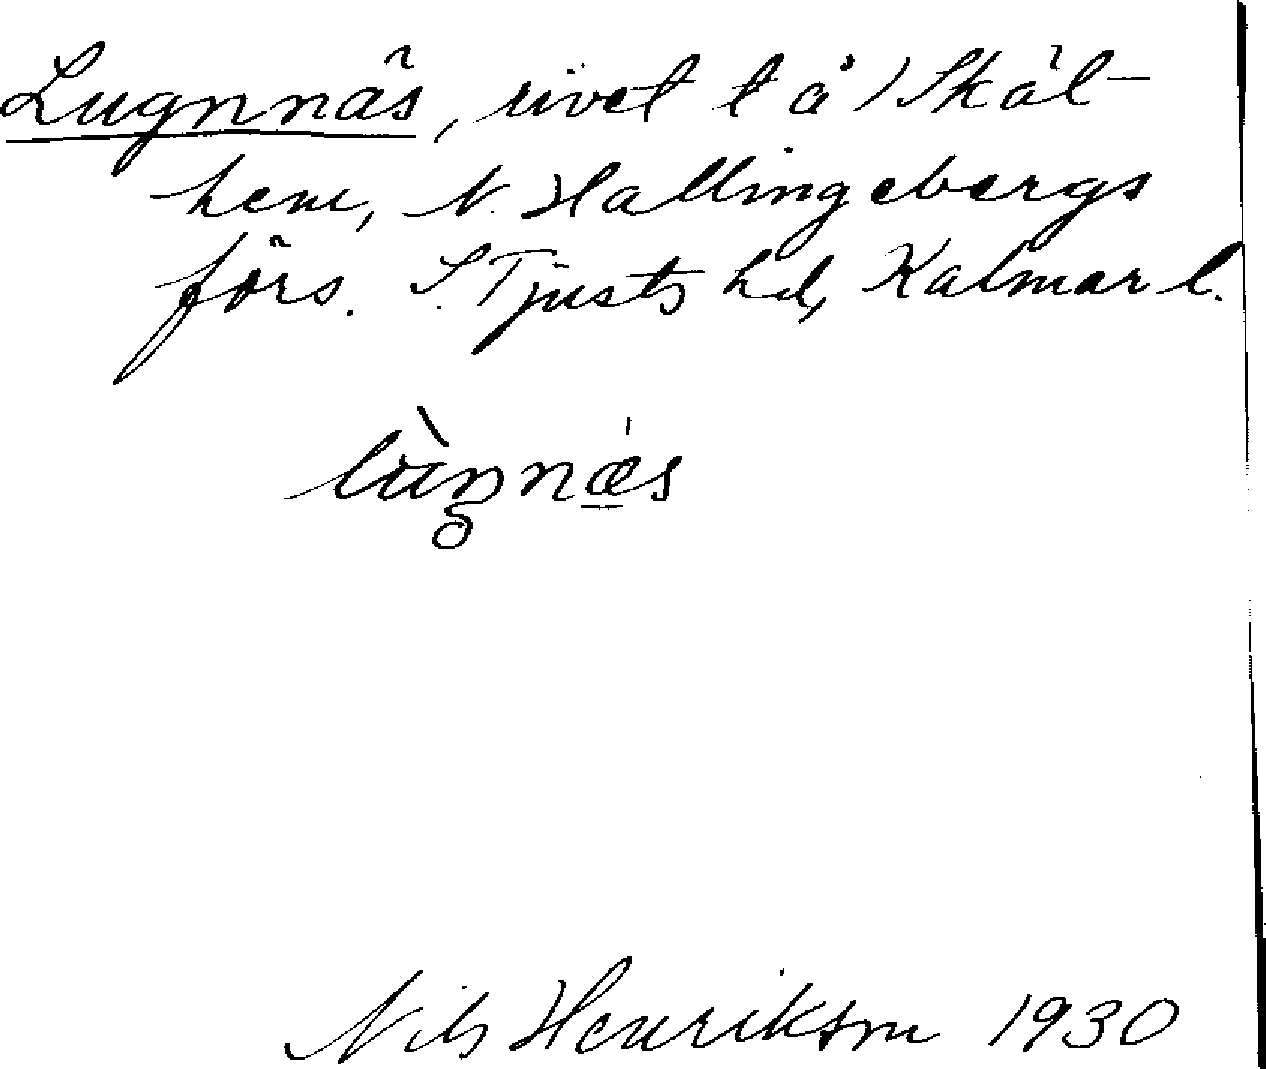 Lugnnäs, rivet t å Skäl-
hem, N. Hallingebergs
förs. S. Tjusts hd, Kalmar l.
lùŋnæs
Nils Henrikson 1930